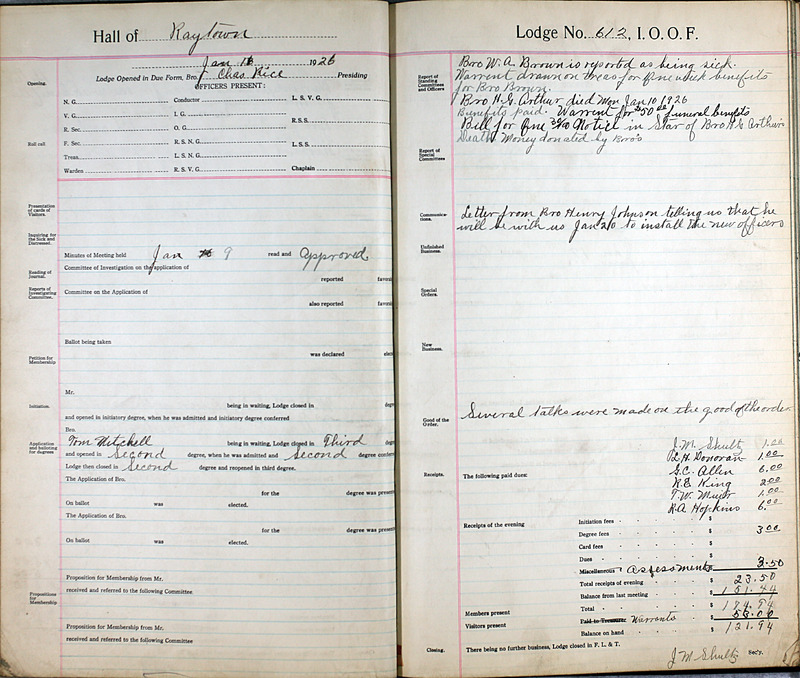 Hall of Raytown
Jan 16 1926
Lodge Opened in Due Form, Bro. Chas Rice Presiding
OFFICERS PRESENT:
Opening.
N. G. Conductor L. S. V. G.
V. G. I. G. R.S.S.
R. Sec. O. G.
Roll call.
F. Sec. R. S. N. G. L.S.S.
Treas. L. S. N. G.
Warden R. S. V. G. Chaplain
Presentation of cards of Visitors.
Inquiring for the Sick and Distressed.
Minutes of Meeting held Jan 9 read and Approved
Reading of Journal.
Committee of Investigation on the application of
reported favor
Reports of Investigating Committee.
Committee on the Application of
also reported favor
Ballot being taken
was declared elec
Petition for Membership
Mr.
Initiation.
being in waiting, Lodge closed in degr
and opened in initiatory degree, when he was admitted and initiatory degree conferred
Bro.
Application and balloting for degrees
Tom Mitchell being in waiting, Lodge closed in Third deg
and opened in Second degree, when he was admitted and Second degree confer
Lodge then closed in Second degree and reopened in third degree.
The Application of Bro.
for the degree was presen
On ballot was elected.
The Application of Bro.
for the degree was presen
On ballot was elected.
Propositions for Membership
Proposition for Membership from Mr.
received and referred to the following Committee
Proposition for Membership from Mr.
received and referred to the following Committee
Lodge No. 612, I. O. O. F.
Report of Standing Committees and Officers
Bro W. A. Brown is reported as being sick.
Warrent drawn on treas for one week benefits
for Bro Brown.
Bro H. G. Arthur died Mon Jan 10 1926
Benefits paid. Warrent for $50.00 funeral benefits
Bill for One Notice in Star of Bro H G Arthurs
Death Money donated by Bro's
Report of Special Committees
Communications.
Letter from Bro Henry Johnson telling us that he
will be with us Jan 20 to install the new officers
Unfinished Business.
Special Orders.
New Business.
Good of the Order.
Several talks were made on the good of the order.
J. M. Shultz 1.00
H. Donovan 1.00
Receipts. The following paid dues: G. C. Allen 6.00
R. E. King 2.00
T. W. 1.00
R A Hopkins 6.00
Receipts of the evening Initiation fees $
Degree fees 3.00
Card fees
Dues $
Miscellaneous Assessments 3.50
Total receipts of evening $ 23.50
Balance from last meeting $ 151.44
Members present Total $ 174.94
Visitors present Paid to Treasurer Warrants $ 53.00
Balance on hand $ 121.94
Closing. There being no further business, Lodge closed in F. L. & T.
J M Shultz Sec'y.